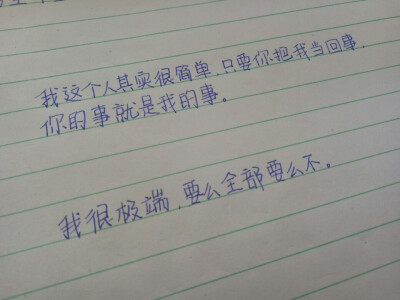 我这个人其实很简单,只要你把我当回事,
你的事就是我的事。
我很极端,要么全部要么不。